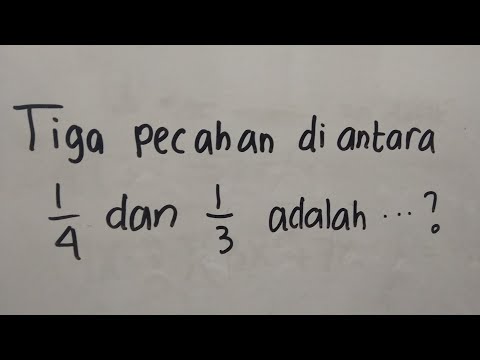 Tiga pecahan di antara
1/4 dan 1/3 adalah ...?